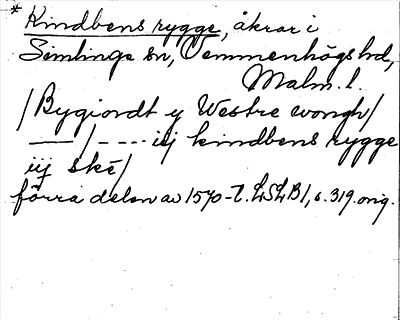 * Kindbens rygge, åkrar i
Simlinge sn, Vemmenhögs hd,
Malm. l.
/Bygiordt y Westre wongh/
—— /- - - - iij kindbens rygge
iij ske/
förra delen av 1570-t. LSLB 1, s. 319. orig.